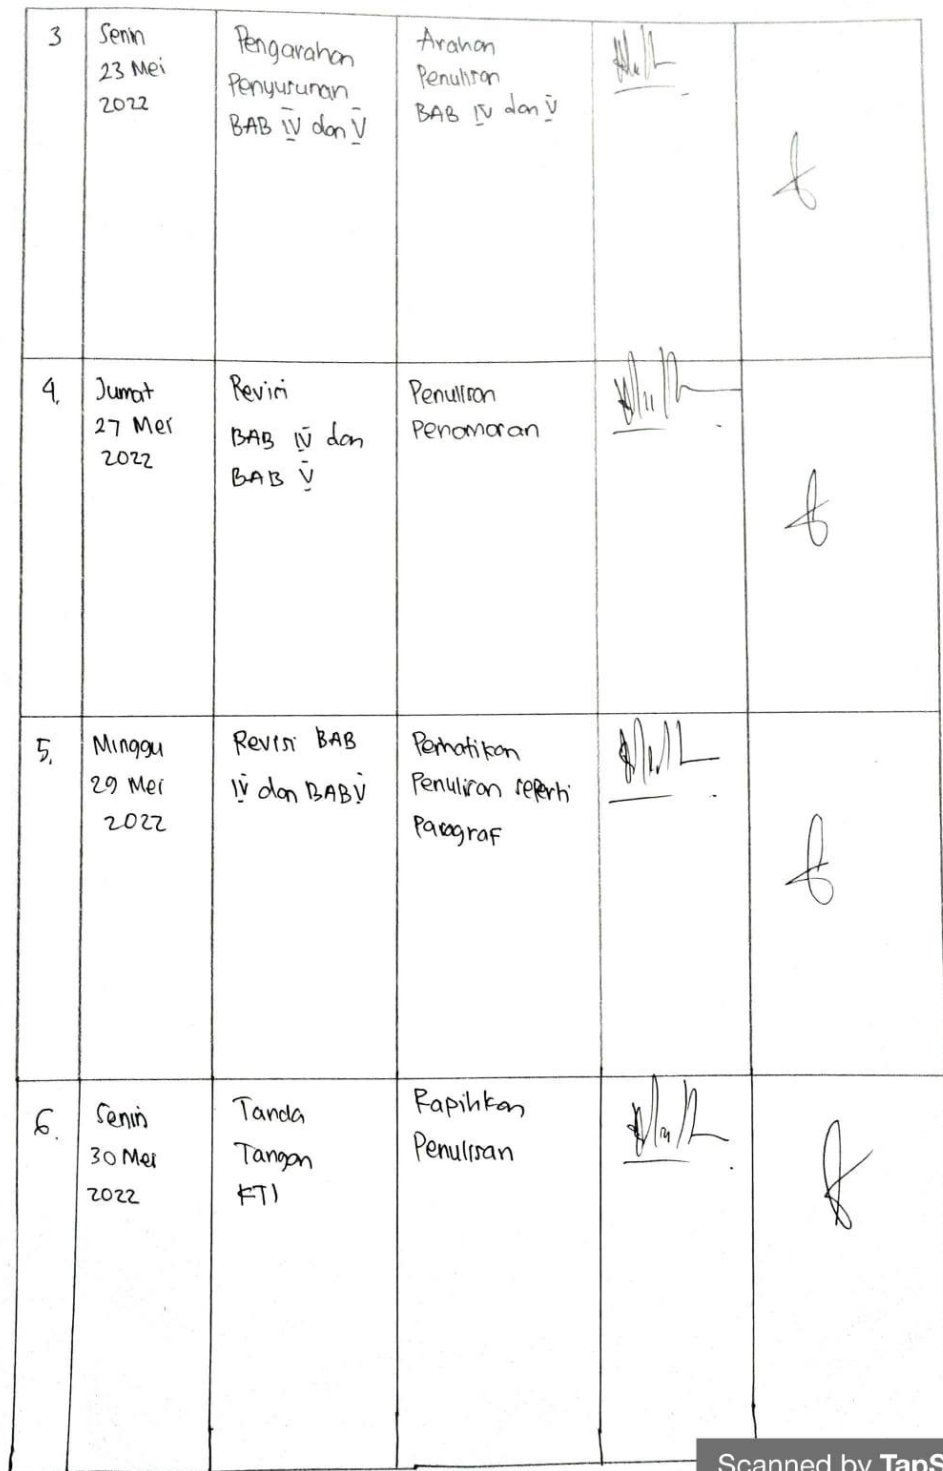 3
Senin
23 Mei
2022
Pengarahan
Penyusunan
BAB IV dan V
Arahan
Penulisan
BAB IV dan V
4.
Jumat
27 Mei
2022
Revisi
BAB IV dan
BAB V
Penulisan
Penomoran
5.
Minggu
29 Mei
2022
Revisi BAB
IV dan BAB V
Perhatikan
Penulisan seperti
Paragraf
6.
Senin
30 Mei
2022
Tanda
Tangan
KTI
Rapihkan
Penulisan
Scanned by TapS